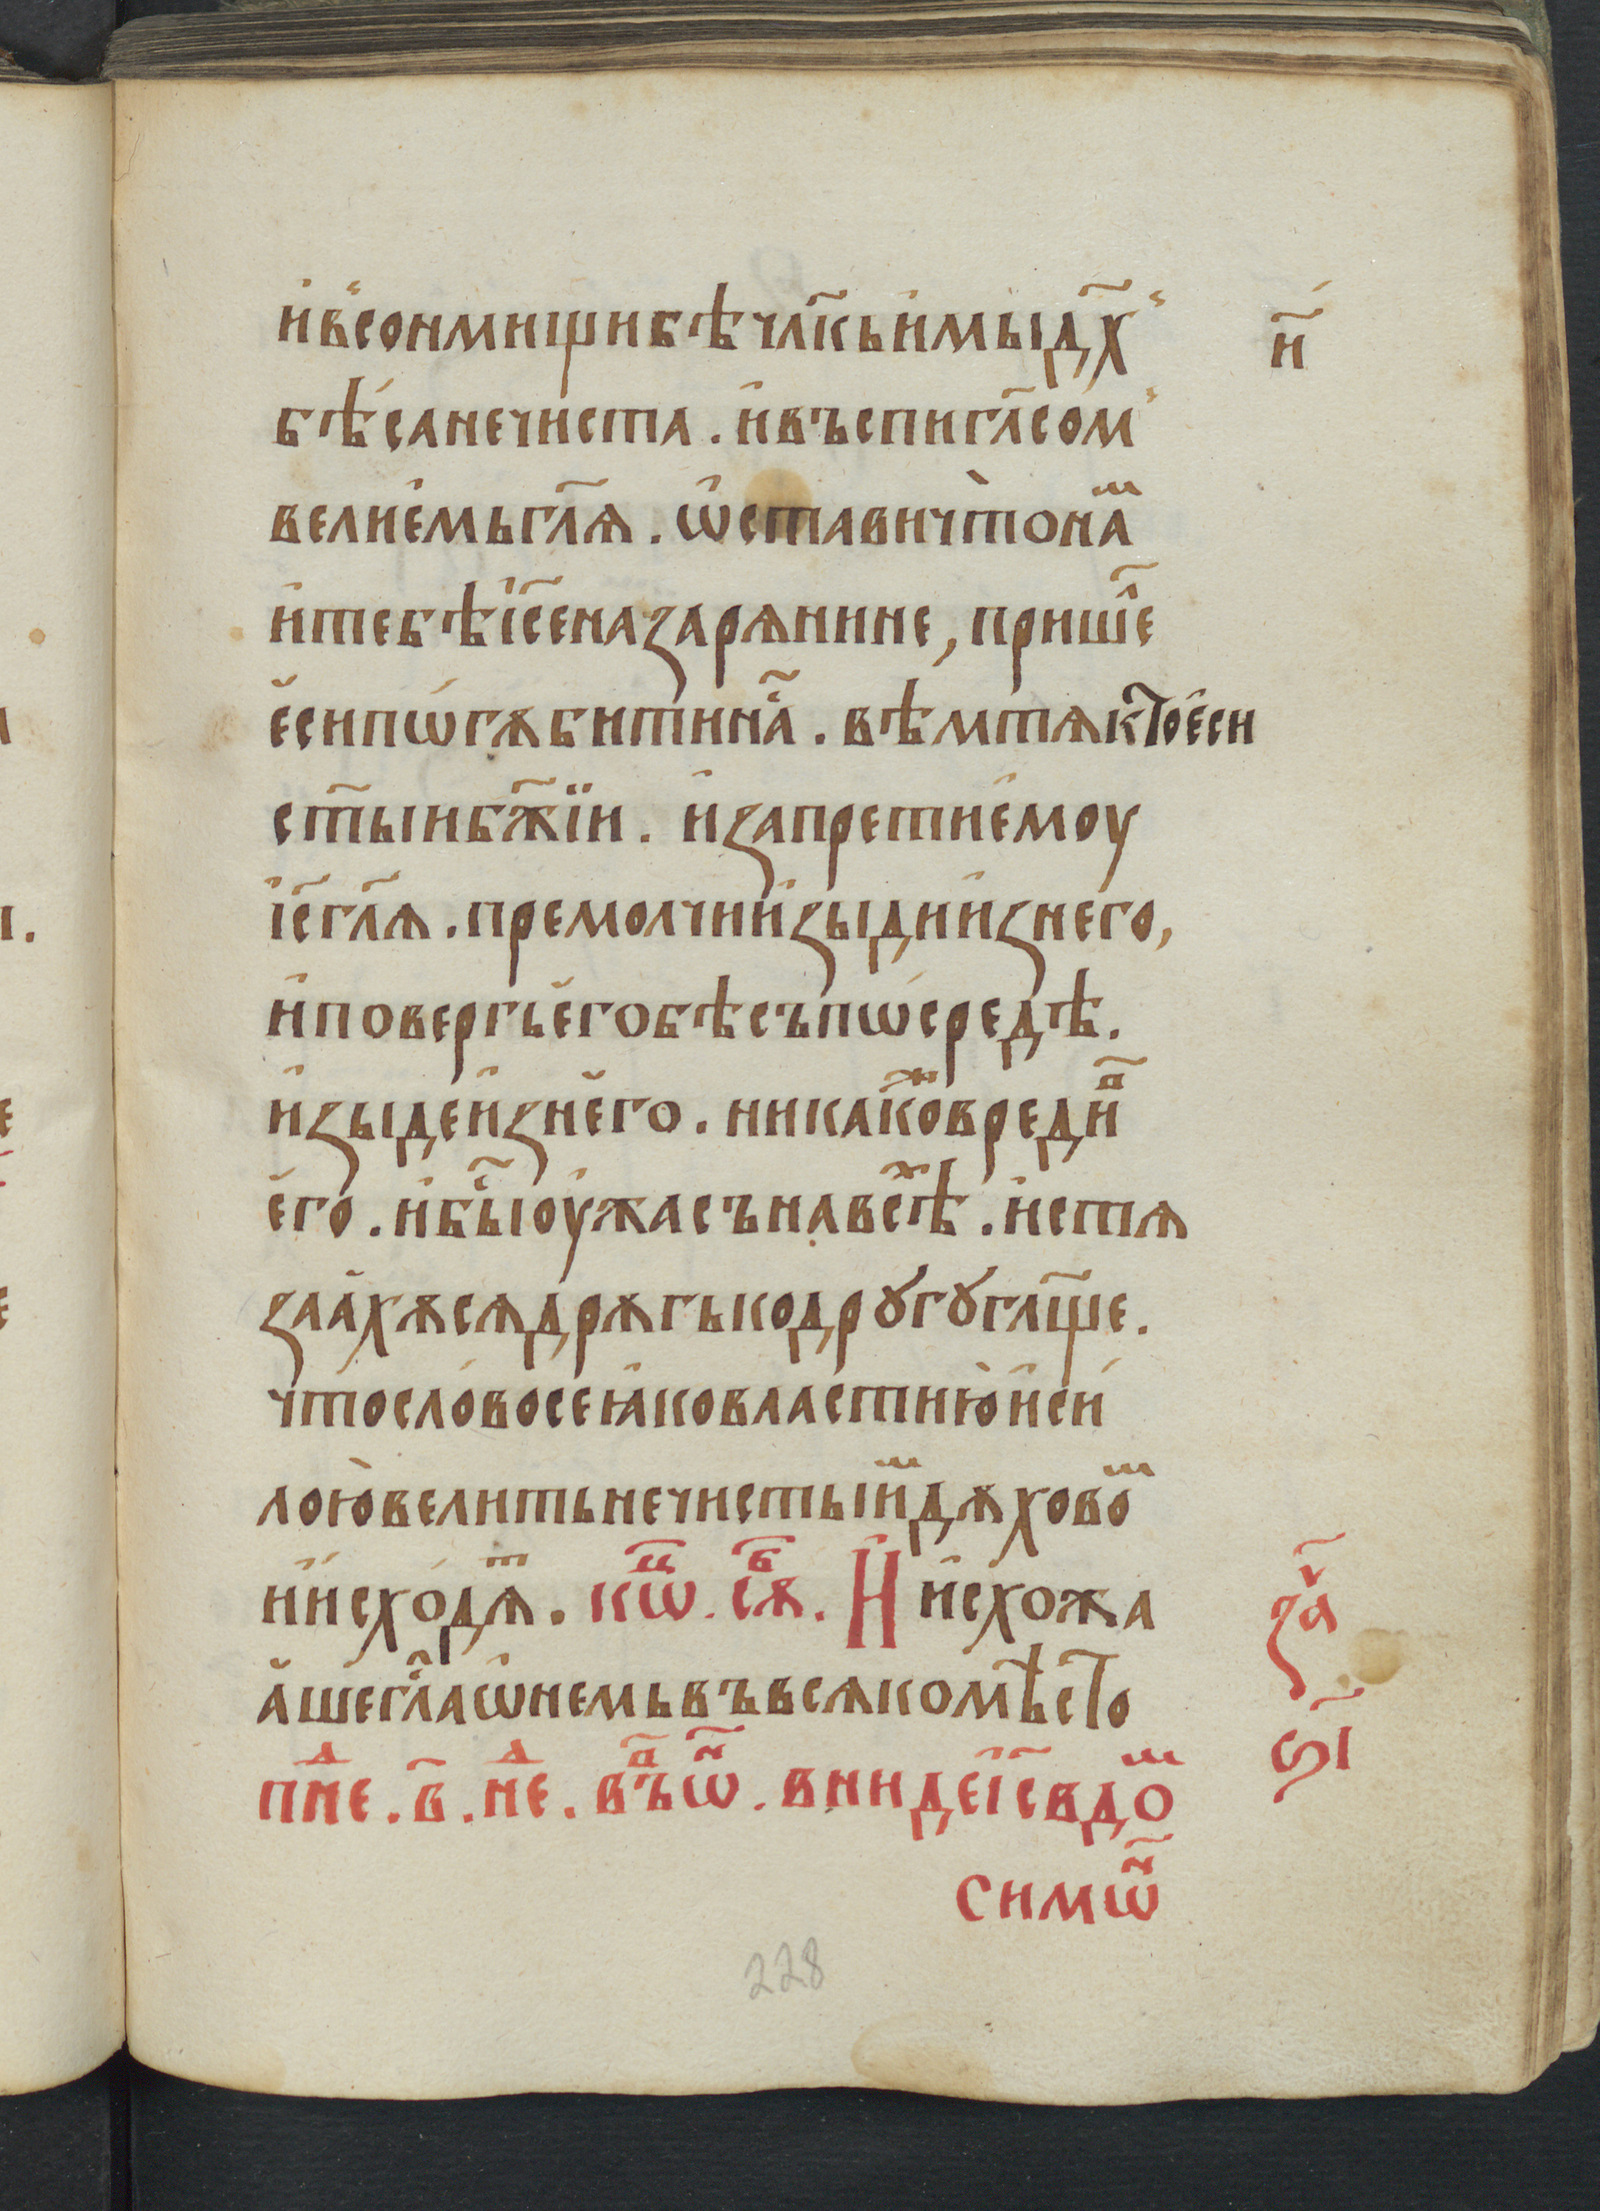 и҆в҆сонмищибѣчл҃кьи҆мы́д҃х н҃
бѣ́санечиста . и҆въспигл҃сом
велие҆мьгл҃ѧ . ѡ҆ставичт̀она ⷨ
и҆тебѣі҆с҃еназарѧнине, прише҃
е҆сипѡ́гѫбитина҃ . вѣмтѧкт҃ое҆си
ст҃ыибж҃їи . и҆запретие҆моу
і҆с҃гл҃ѧ . премолчии҆зыдии҆знего,
и҆повергье҆гобѣсъпѡ́средѣ .
и҆зыдеи҆знего . никакоⷤвредиⷡ҇
е҆го . и҆бы҃оу҆жасънавсѣⷯ . и҆стѧ
заа҆хѫсѧдрѫгькодрꙋгꙋгл҃ще .
чтослово́сеꙗ҆ковластию҆и҆си́
лою̀велитьнечистыиⷨдѫховоⷨ
и҆и҆схо́дѧⷮ . кѡⷰ҇ . сѫⷠ҇ . И и҆схожа за҃
а҆шегл҃аѡ҆немьвъвсѧкомѣсто
пнⷣе . в҃ . нⷣе . въⷡ҇ѡⷩ҇ . внидеі҆с҃вдоⷨ ѕ҃і
симѡⷩ҇
228